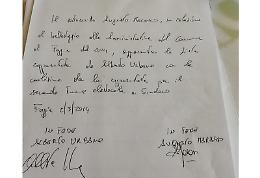 Il sottoscritto Augusto Marasco, in relazione
al ballottaggio alle Amministrative del Comune
di Foggia del 2014, apparenta la lista
capeggiata da Alberto Urbano con la
coalizione da me capeggiata per il
secondo Turno elettorale a Sindaco
Foggia
In Fede
Alberto Urbano
In Fede
Augusto Marasco